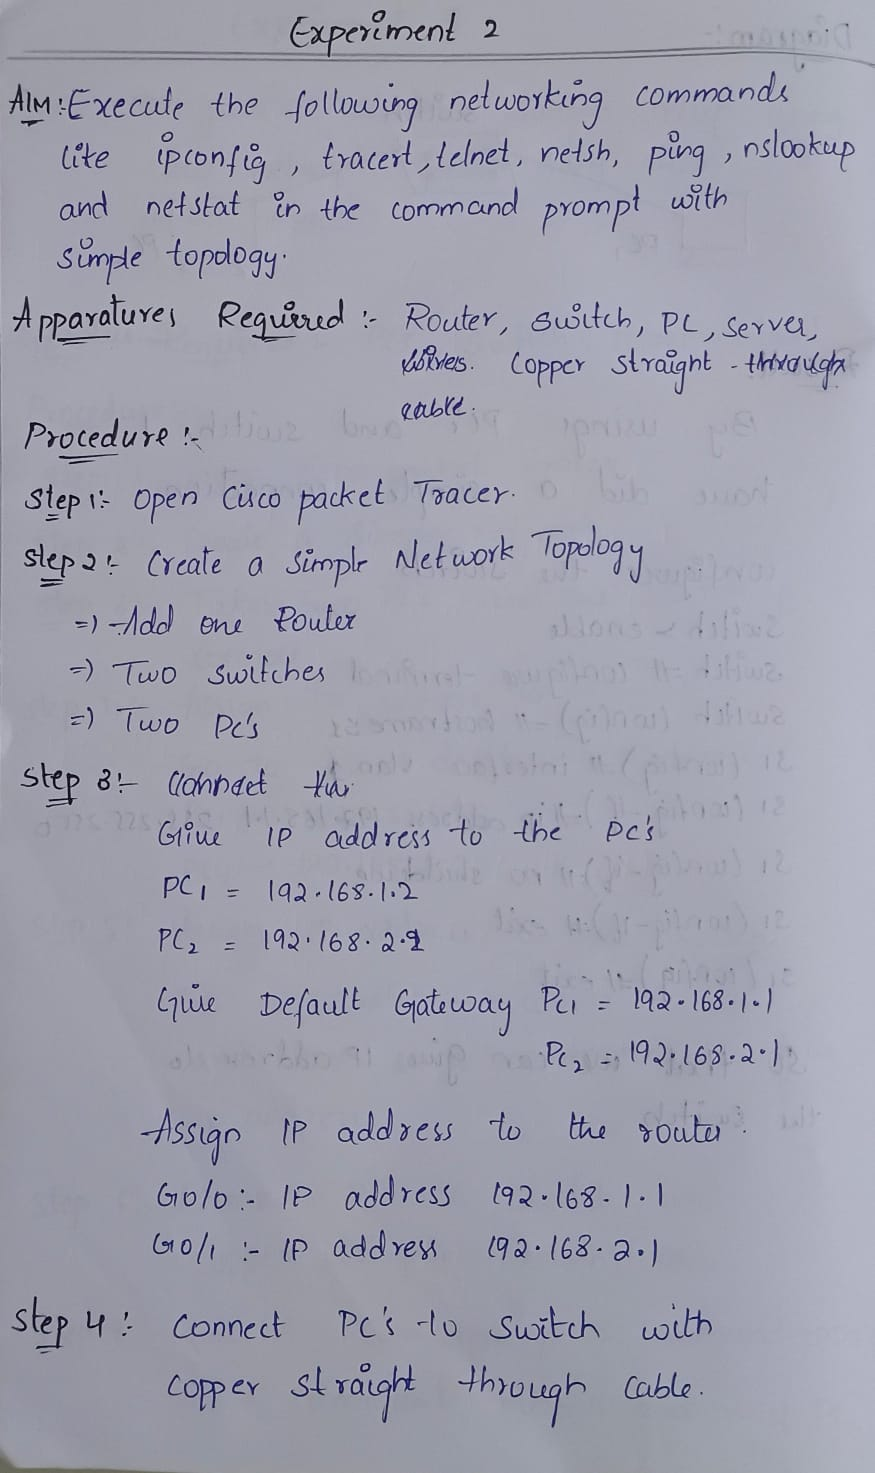 Experiment 2
AIM: Execute the following networking commands
like ipconfig, tracert, telnet, netsh, ping, nslookup
and netstat in the command prompt with
simple topology.
Apparatures Required :- Router, switch, PC, server,
Copper straight-through
cable.
Procedure :-
Step 1:- Open Cisco packet Tracer.
Step 2:- Create a Simple Network Topology
=) Add one Router
=) Two switches
=) Two Pc's
Step 3:- Connect the
Give IP address to the Pc's
PC1 = 192.168.1.2
PC2 = 192.168.2.2
Give Default Gateway Pc1 = 192.168.1.1
Pc2 = 192.168.2.1
Assign IP address to the router.
G0/0 :- IP address 192.168.1.1
G0/1 :- IP address 192.168.2.1
Step 4 :- Connect PC's to switch with
copper straight through cable.